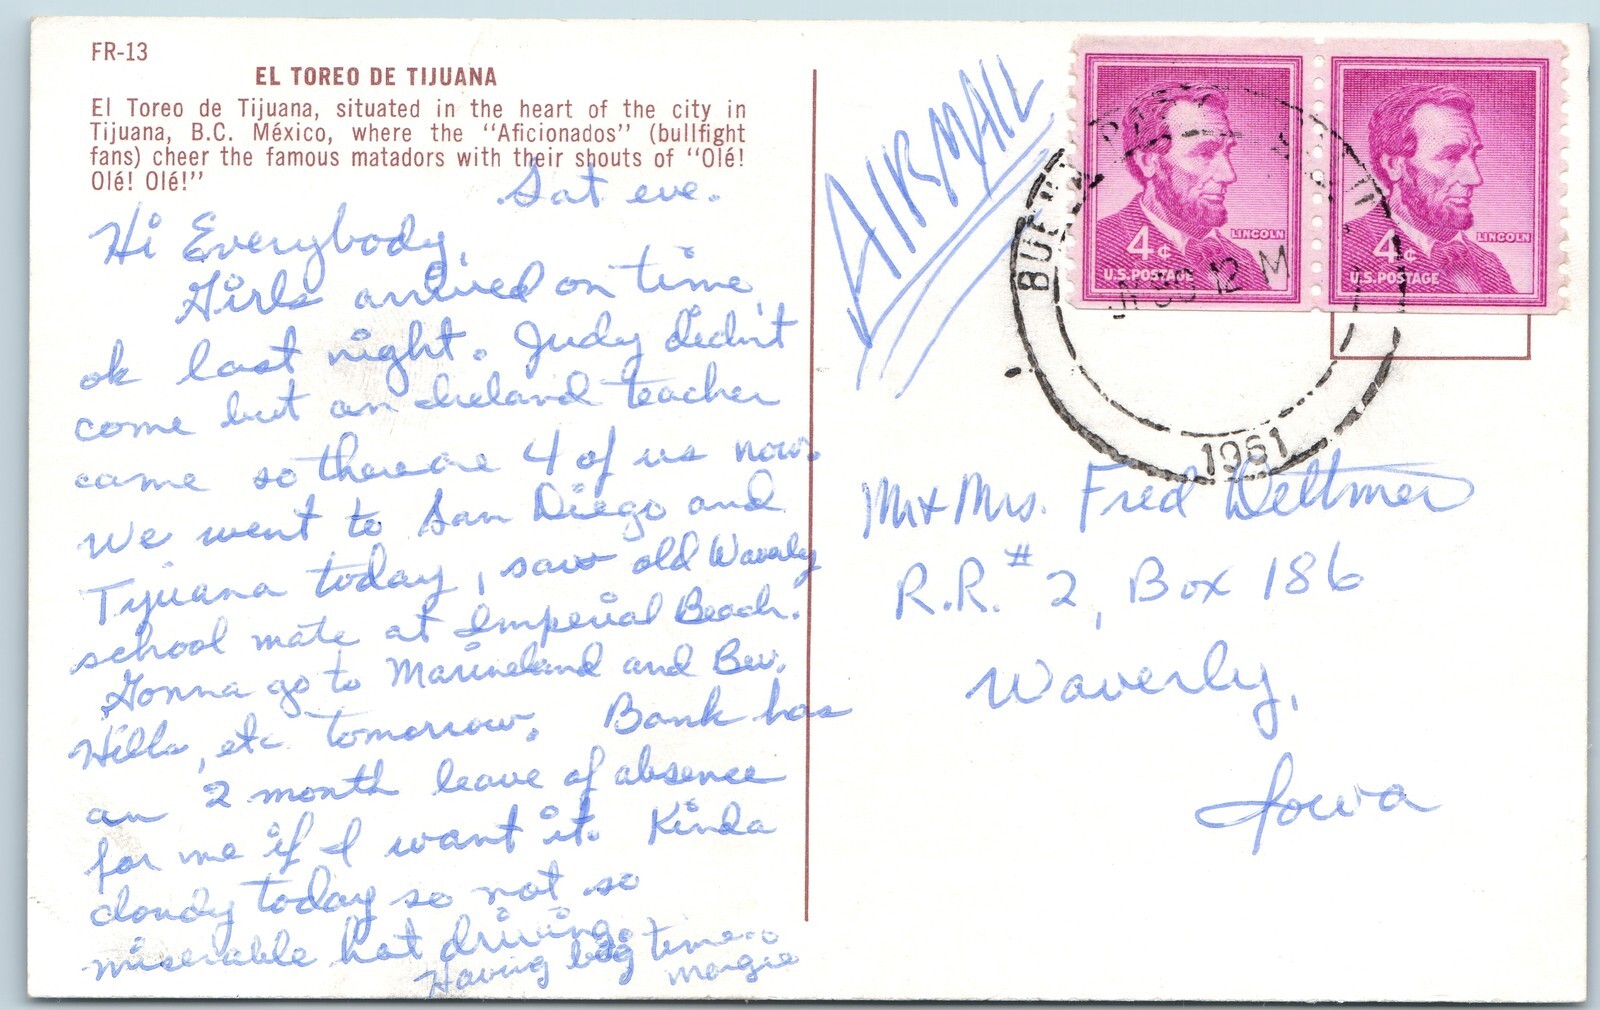 FR-13
EL TOREO DE TIJUANA
El Toreo de Tijuana, situated in the heart of the city in
Tijuana, B.C. México, where the "Aficionados" (bullfight
fans) cheer the famous matadors with their shouts of "Olé!
Olé! Olé!"
Sat eve.
Hi Everybody,
Girls arrived on time,
ok last night. Judy didn't
come but an Ireland teacher
came so there are 4 of us now.
We went to San Diego and
Tijuana today, saw old Waverly
school mate at Imperial Beach.
Gonna go to Marineland and Bev.
Hills, etc tomorrow. Bank has
an 2 month leave of absence
for me if I want it. Kinda
cloudy today so not so
miserable hot driving.
Having big time.
Margie
AIRMAIL
LINCOLN
4¢
U.S. POSTAGE
LINCOLN
4¢
U.S. POSTAGE
BUENA
12 M
1961
Mr & Mrs. Fred Dettmer
R.R. # 2, Box 186
Waverly,
Iowa